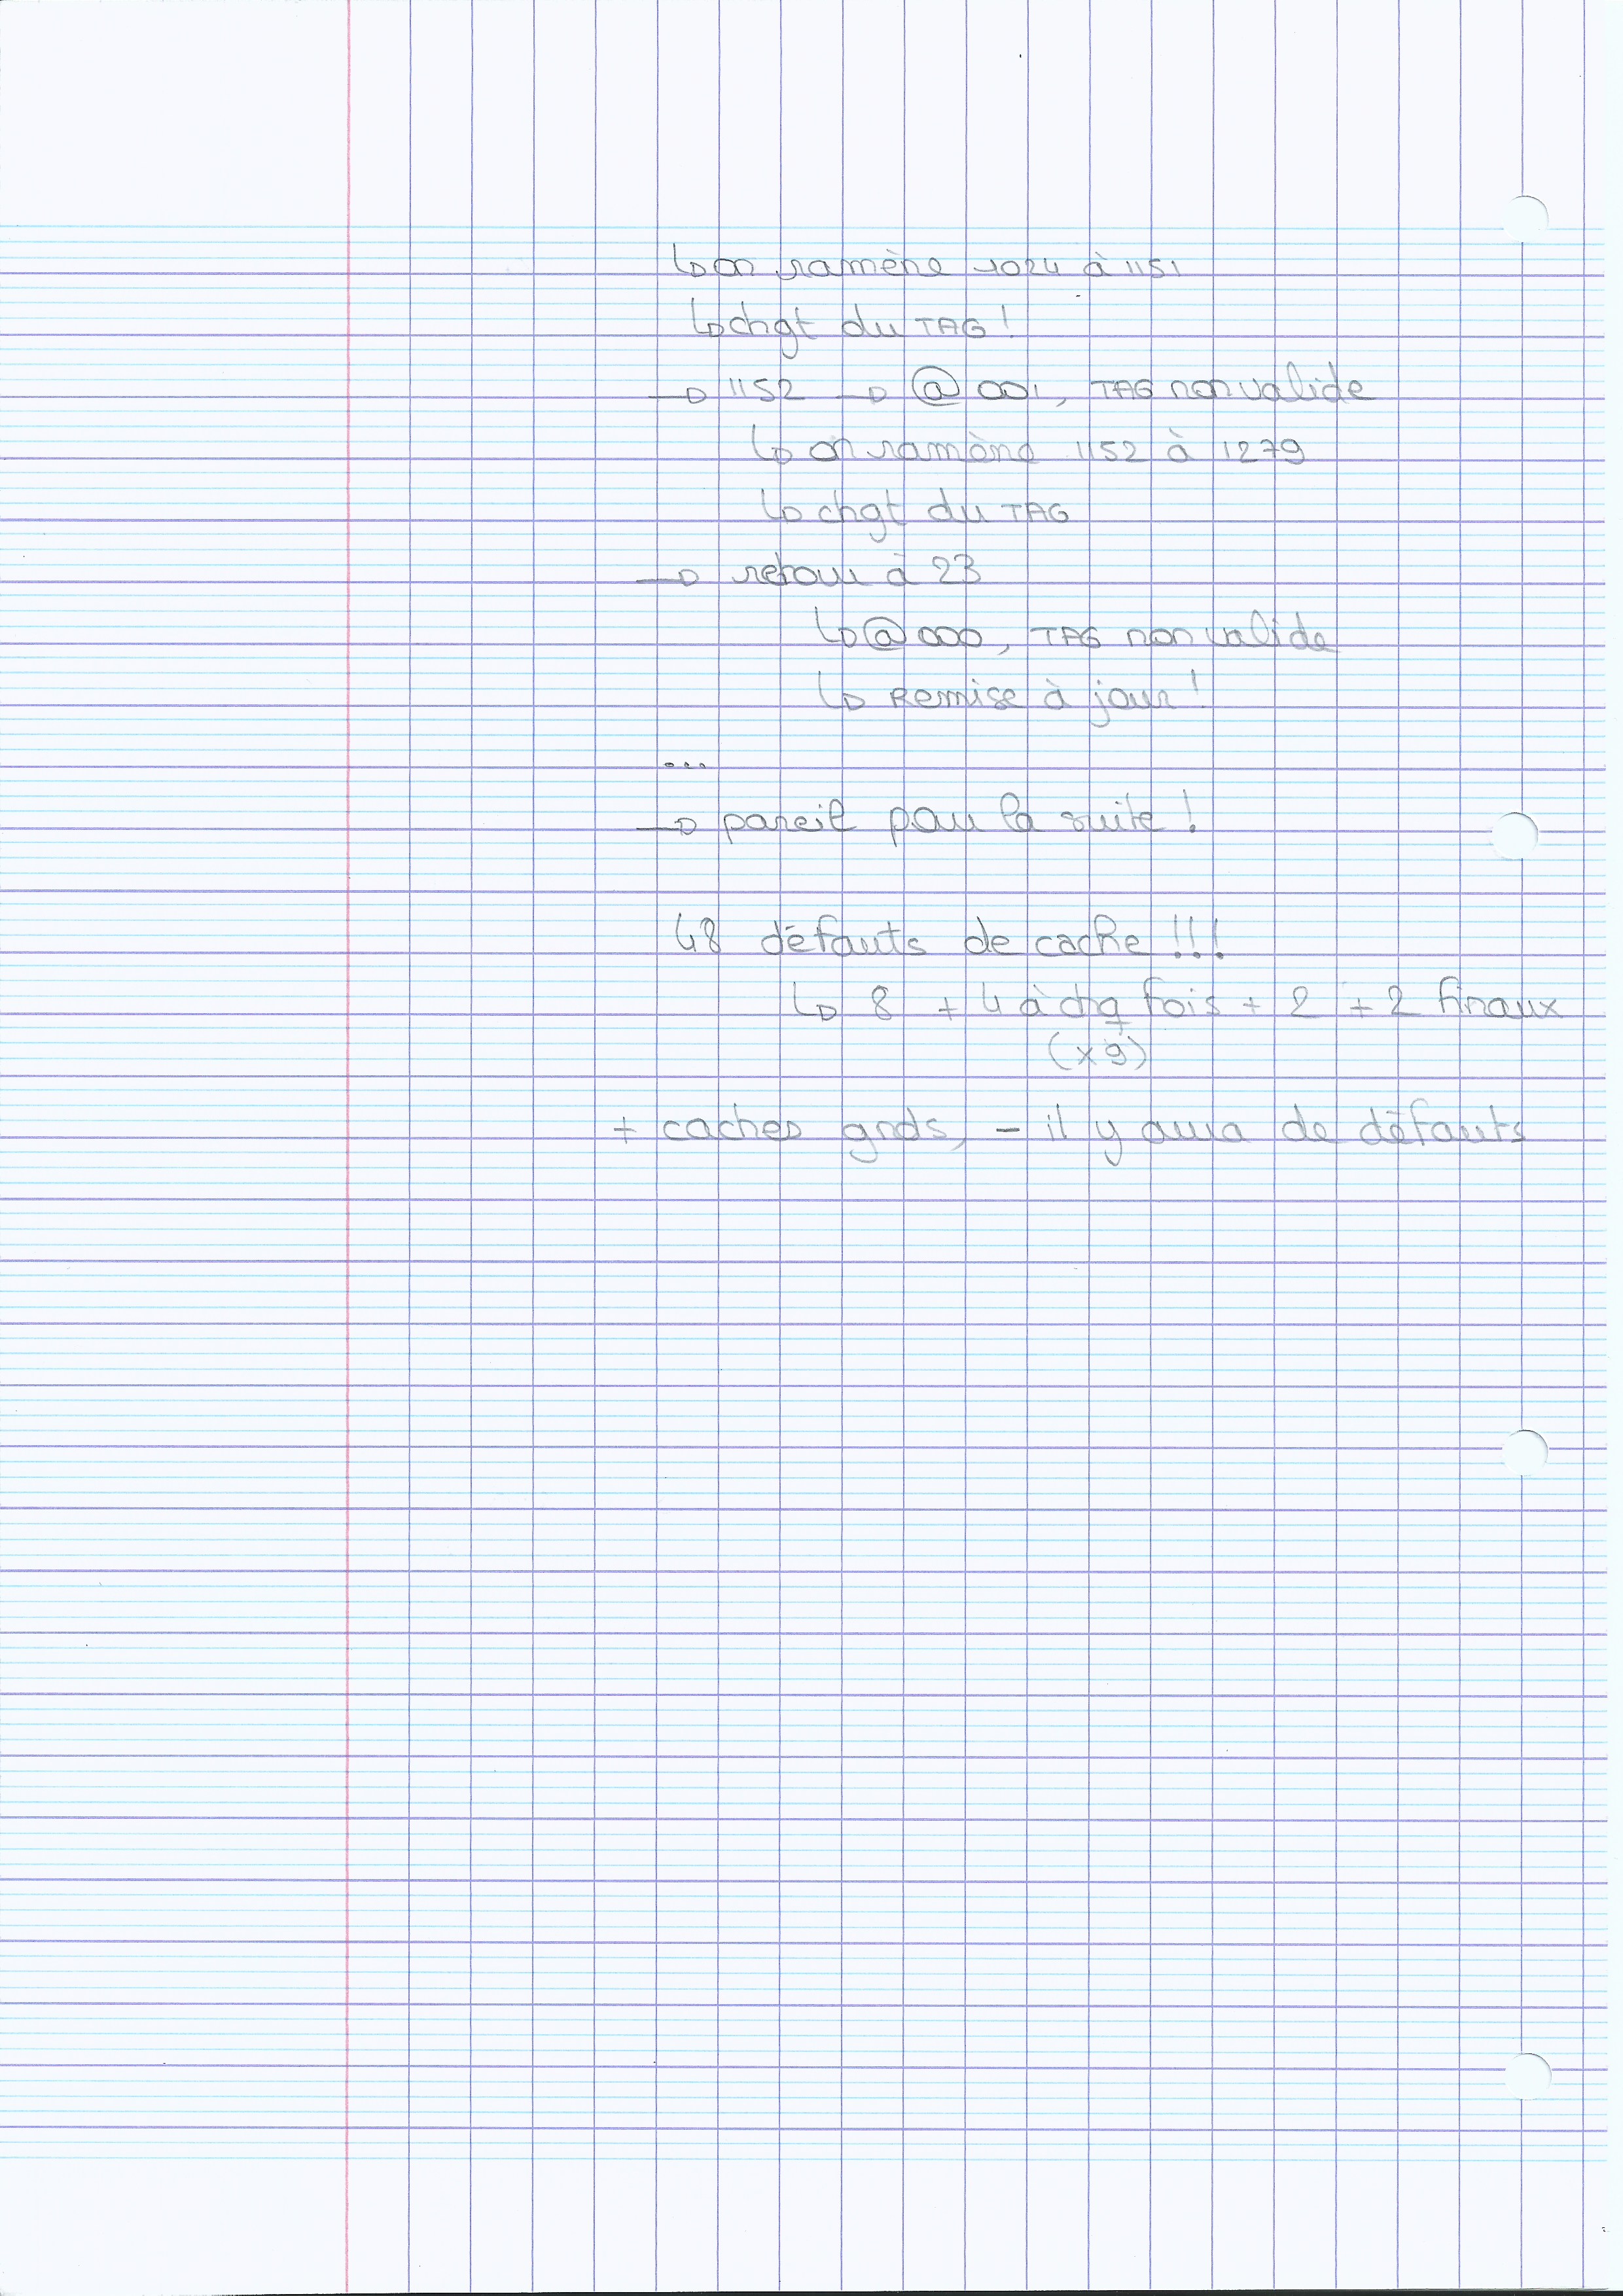 ↳ on ramène 1024 à 1151
↳ chgt du TAG !
→ 1152 → @ 001, TAG non valide
↳ on ramène 1152 à 1279
↳ chgt du TAG
→ retour à 23
↳ @ 000, TAG non valide
↳ Remise à jour !
...
→ pareil pour la suite !
48 défauts de cache !!!
↳ 8 + 4 à chq fois + 2 + 2 finaux
(x9)
+ caches gnds, - il y aura de défauts